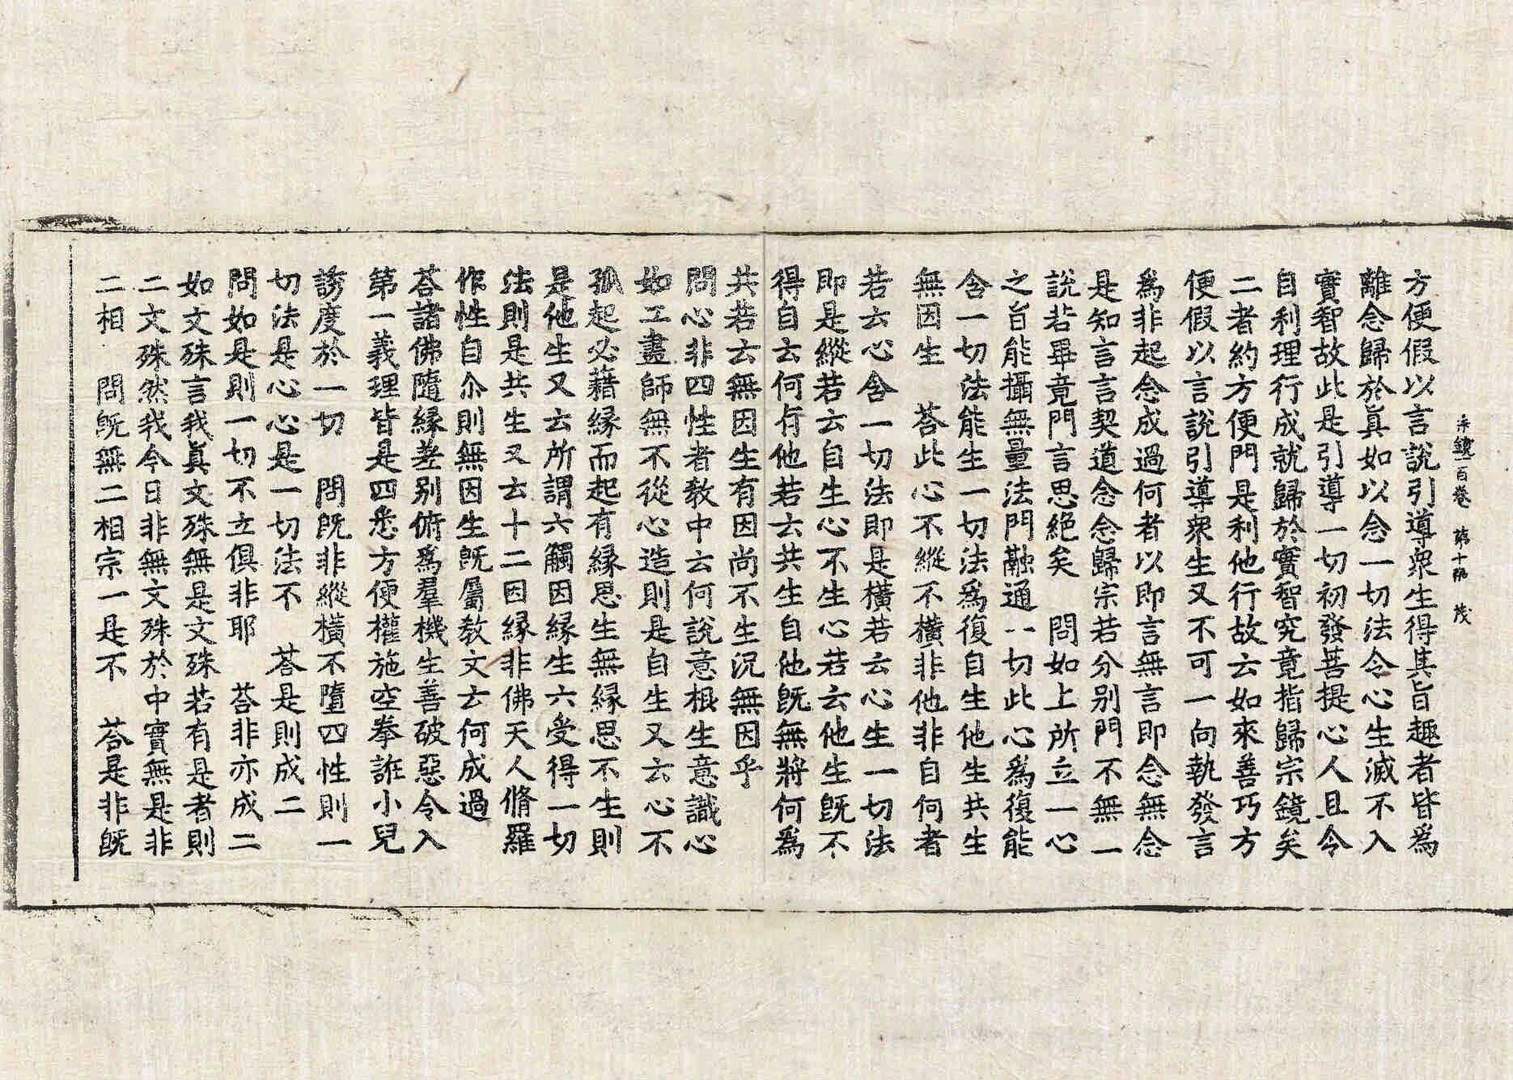 宗鏡一百卷　第十張　茂
方便假以言說引導衆生得其旨趣者皆爲
離念歸於眞如以念一切法令心生滅不入
實智故此是引導一切初發菩提心人且令
自利理行成就歸於實智究竟指歸宗鏡矣
二者約方便門是利他行故云如來善巧方
便假以言說引導衆生又不可一向執發言
爲非起念成過何者以即言無言即念無念
是知言言契道念念歸宗若分別門不無一
說若畢竟門言思絕矣　問如上所立一心
之旨能攝無量法門融通一切此心爲復能
含一切法能生一切法爲復自生他生共生
無因生　荅此心不縱不橫非他非自何者
若云心含一切法即是橫若云心生一切法
即是縱若云自生心不生心若云他生旣不
得自云何有他若云共生自他旣無將何爲
共若云無因生有因尚不生況無因乎
問心非四性者敎中云何說意根生意識心
如工畫師無不從心造則是自生又云心不
孤起必藉緣而起有緣思生無緣思不生則
是他生又云所謂六觸因緣生六受得一切
法則是共生又云十二因緣非佛天人脩羅
作性自尒則無因生旣屬敎文云何成過
荅諸佛隨緣差別俯爲羣機生善破惡令入
第一義理皆是四悉方便權施空拳誑小兒
誘度於一切　問旣非縱橫不墮四性則一
切法是心心是一切法不　荅是則成二
問如是則一切不立俱非耶　荅非亦成二
如文殊言我眞文殊無是文殊若有是者則
二文殊然我今日非無文殊於中實無是非
二相　問旣無二相宗一是不　荅是非旣